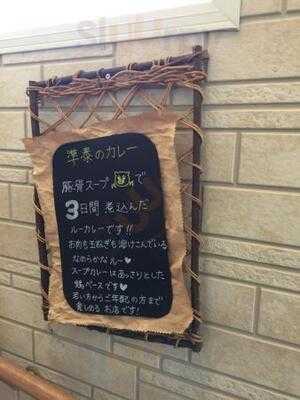 準泰のカレー
豚骨スープで
3日間煮込んだ
ルーカレーです!!
お肉も玉ねぎも溶けこんでいる
なめらかなルー♥
スープカレーはあっさりとした
鶏ベースです♥
若い方からご年配の方まで
楽しめるお店です!